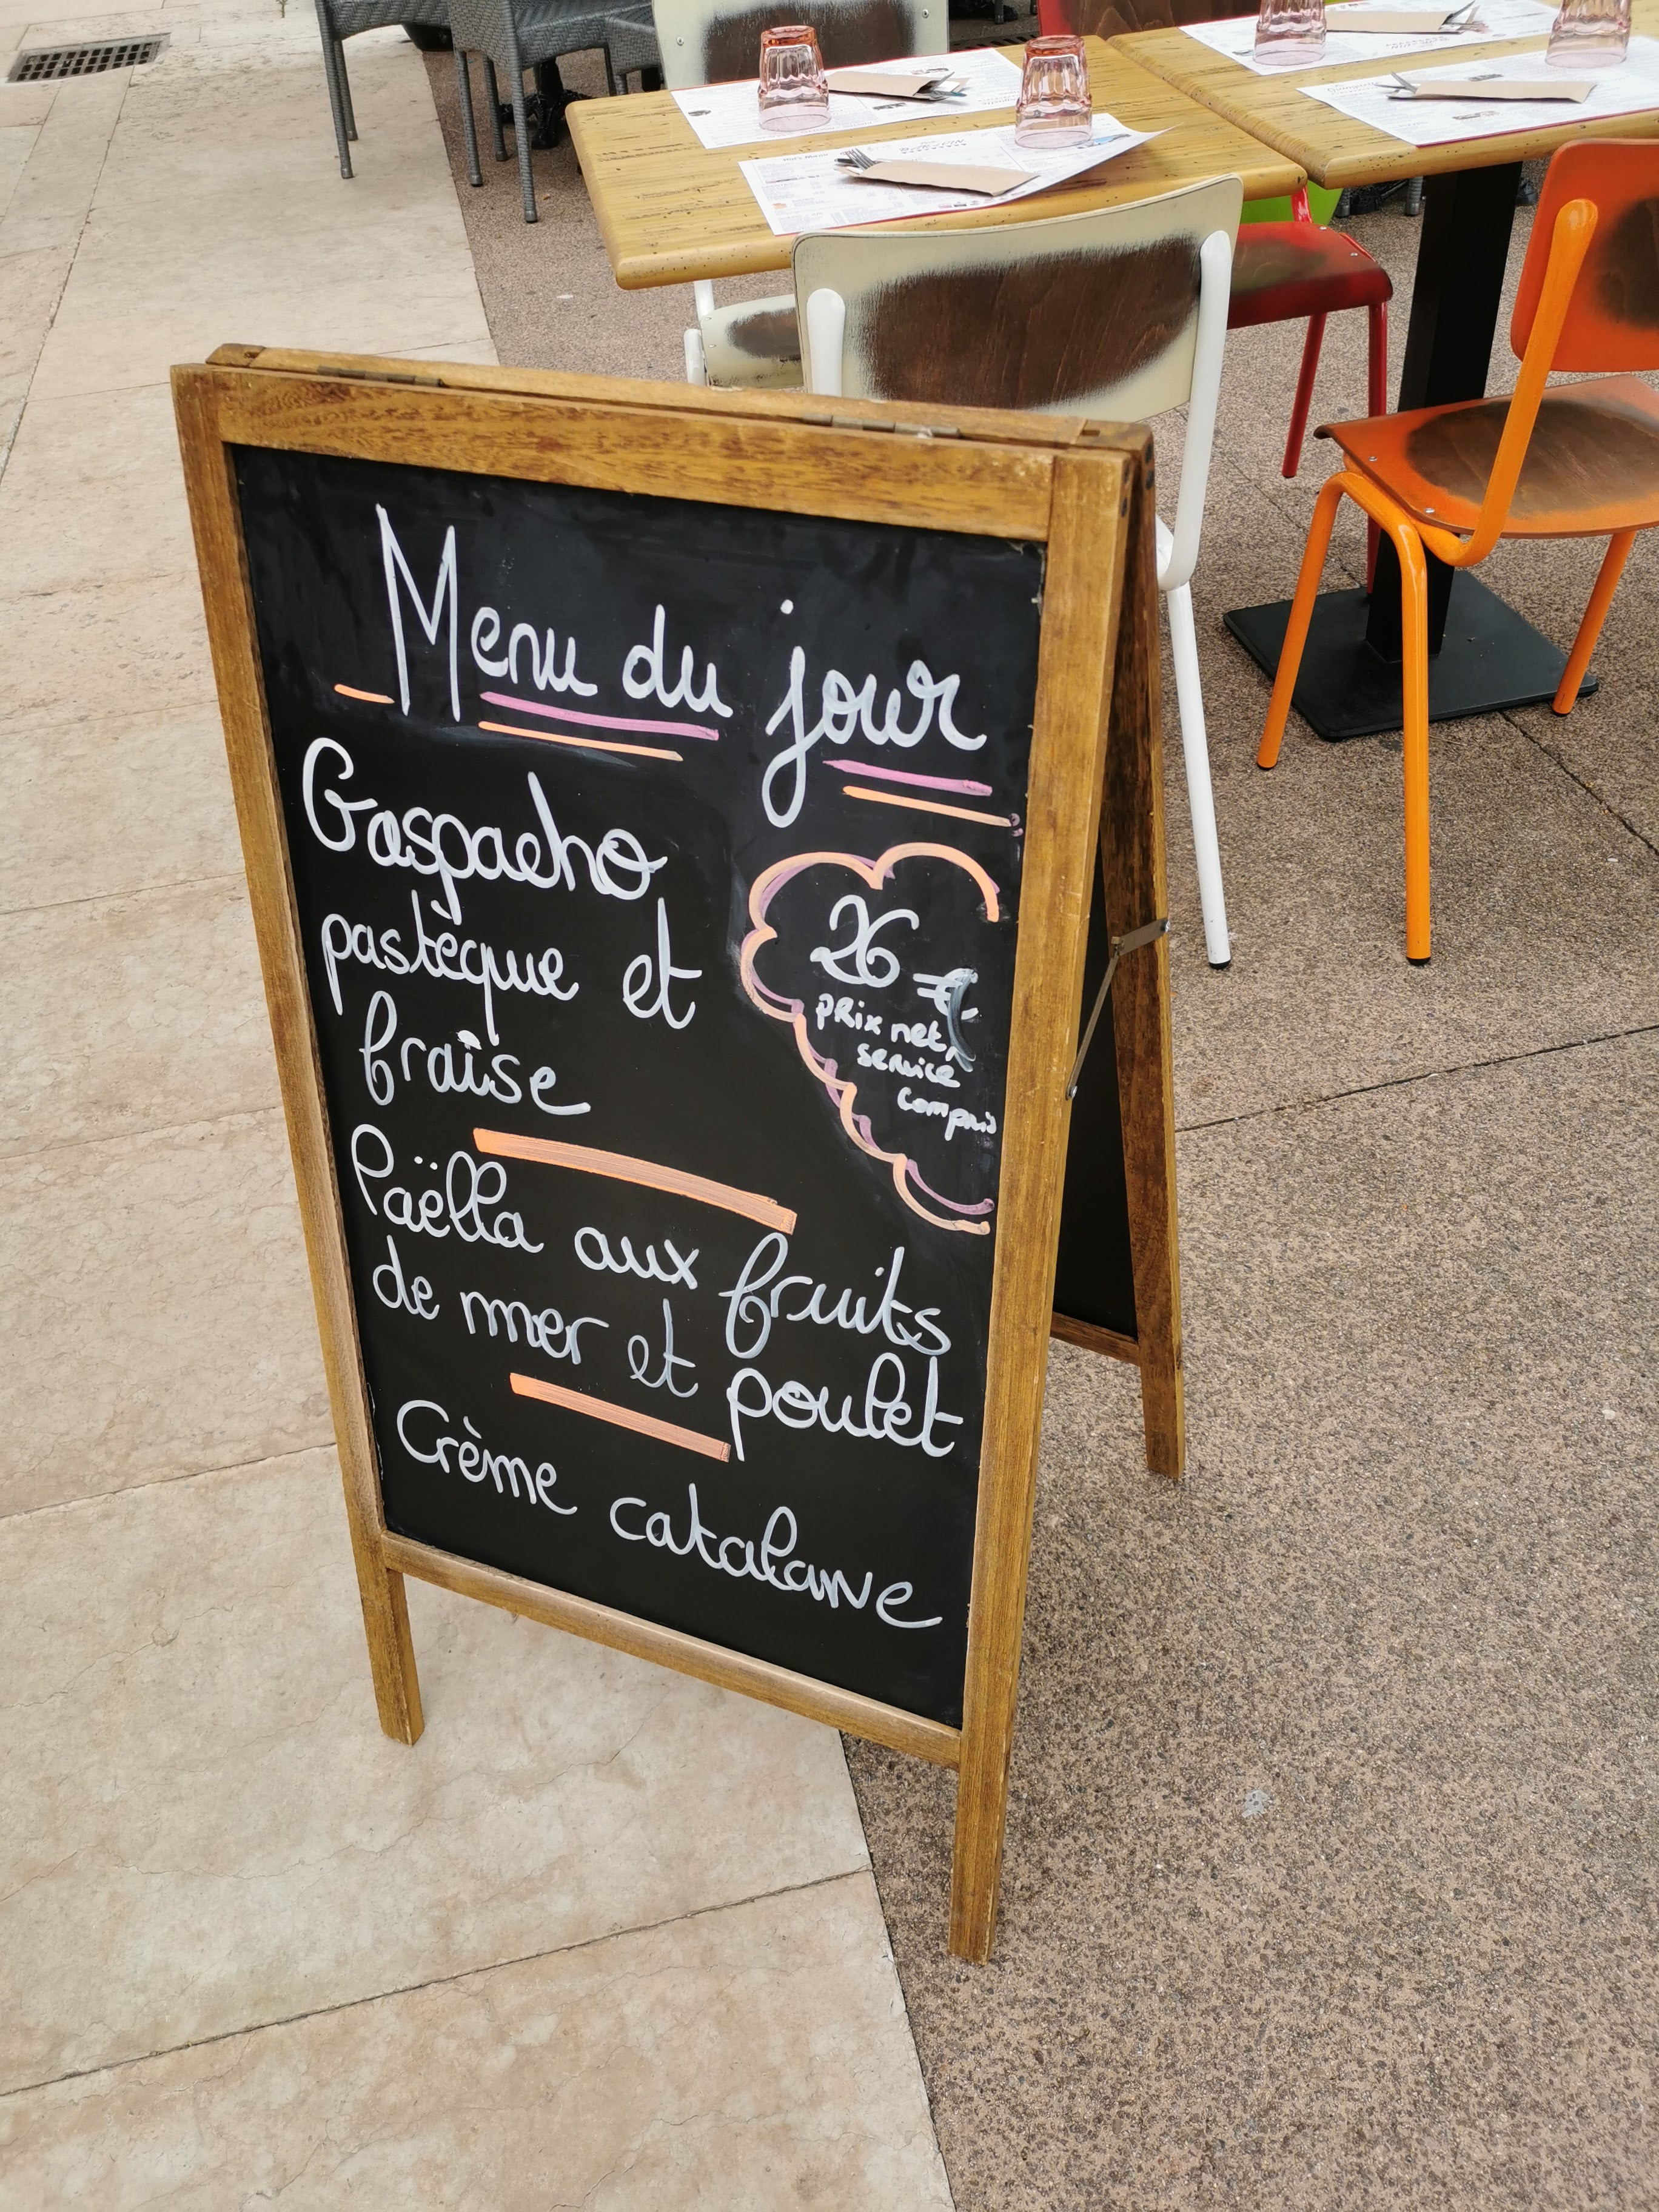 Menu du jour
Gaspacho
pastèque et
fraîse
26 €
prix net,
service
compris
Paëlla aux fruits
de mer et poulet
Crème catalane